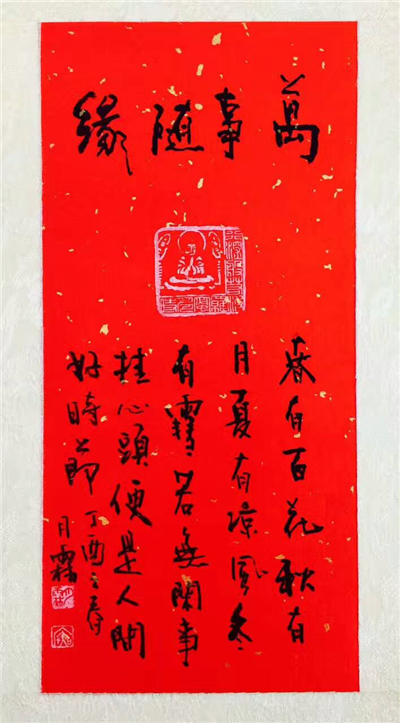 萬事随緣
春有百花秋有
月夏有凉風冬
有雪若無閑事
挂心頭便是人間
好時節
丁酉之春
月霜